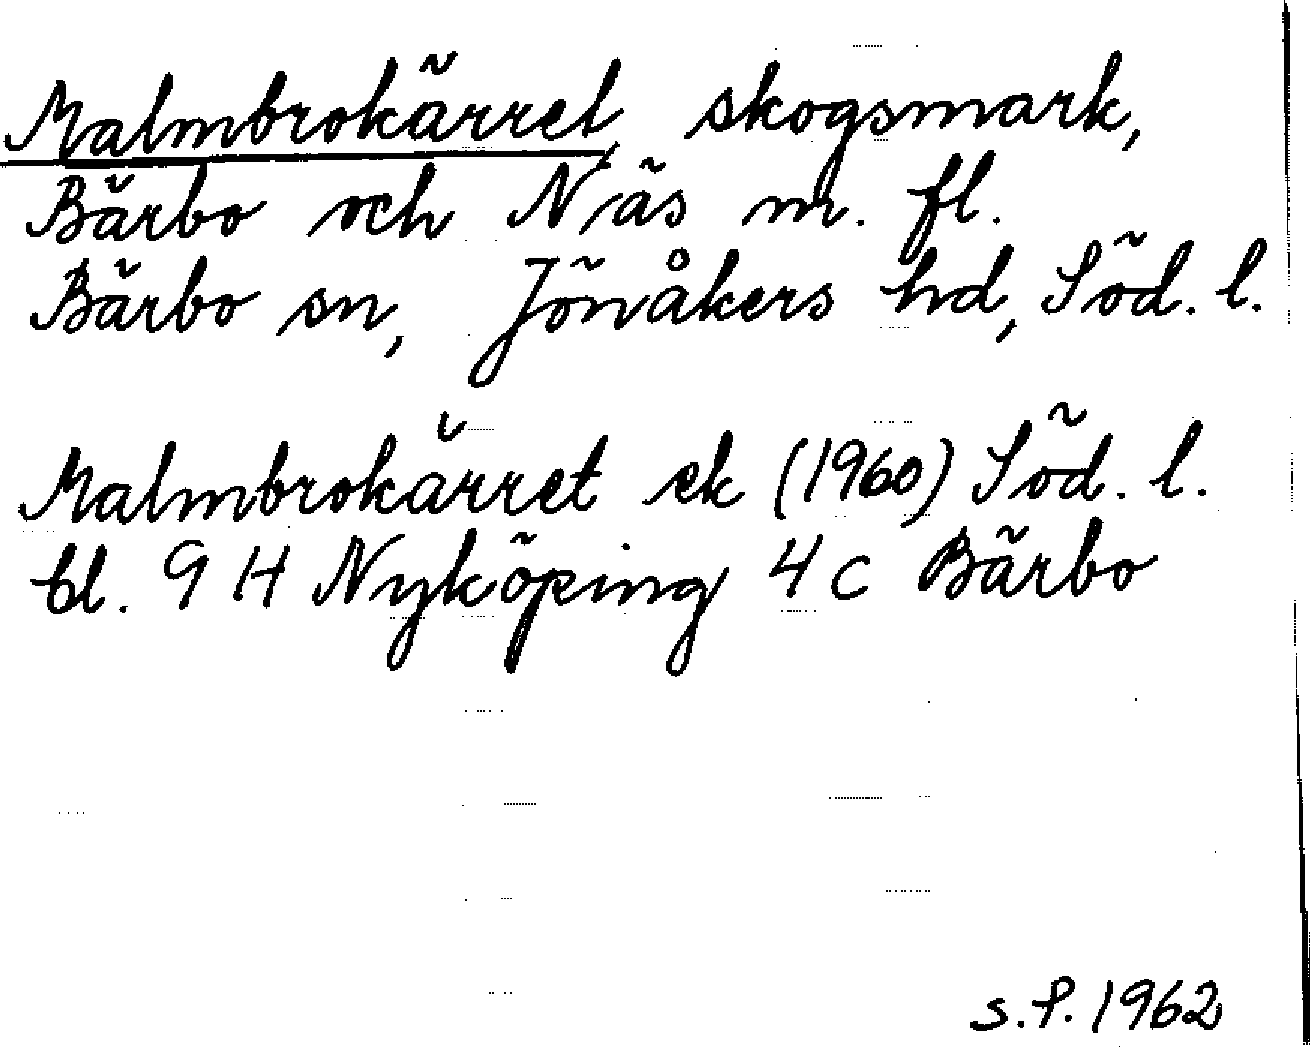 Malmbrokärret, skogsmark,
Bärbo och Näs m. fl.
Bärbo sn, Jönåkers hd, Söd. l.
Malmbrokärret ek (1960) Söd. l.
bl. 9 H Nyköping 4 c Bärbo
S.P. 1962